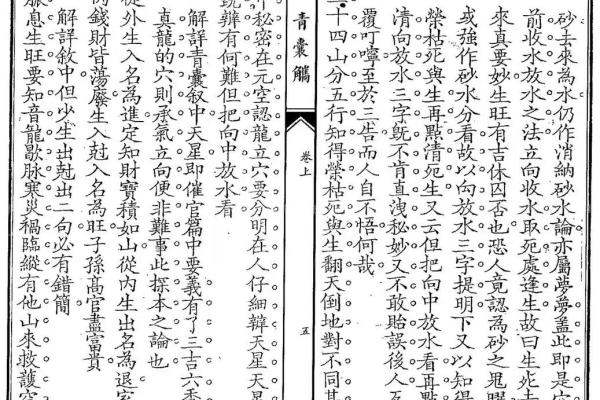 砂去來為水仍作消納砂水論亦屬夢夢葢此即是穴
前收水放水之法立向收水取死處逢生故曰生死去
來真要妙生旺有吉休囚否也恐人竟認為砂之曜
或強作砂水分看故以向放水三字提明下又以知得
榮枯死與生再點清死生又云但把向中放水看再點
清向放水三字旣不肯直洩秘妙又不敢貽誤後人
覆叮嚀至於三告而人自不悟何哉
二十四山分五行知得榮枯死與生翻天倒地對不同其
青囊觿
卷上
五
中秘密在元空認龍立穴要分明在人仔細辯天星天星
旣辨有何難但把向中放水看
解詳青囊敘中天星即催官篇中要義有了三吉六秀
真龍的穴則承氣立向便非難事此探本之論也
從外生入名為進定知財寶積如山從內生出名為退家
內錢財皆蕩廢生入尅入名為旺子孫高官盡富貴
解詳敘中但少生出尅出二句必有錯簡
脉息生旺要知音龍歇脉寒災禍臨縱有他山來救護空